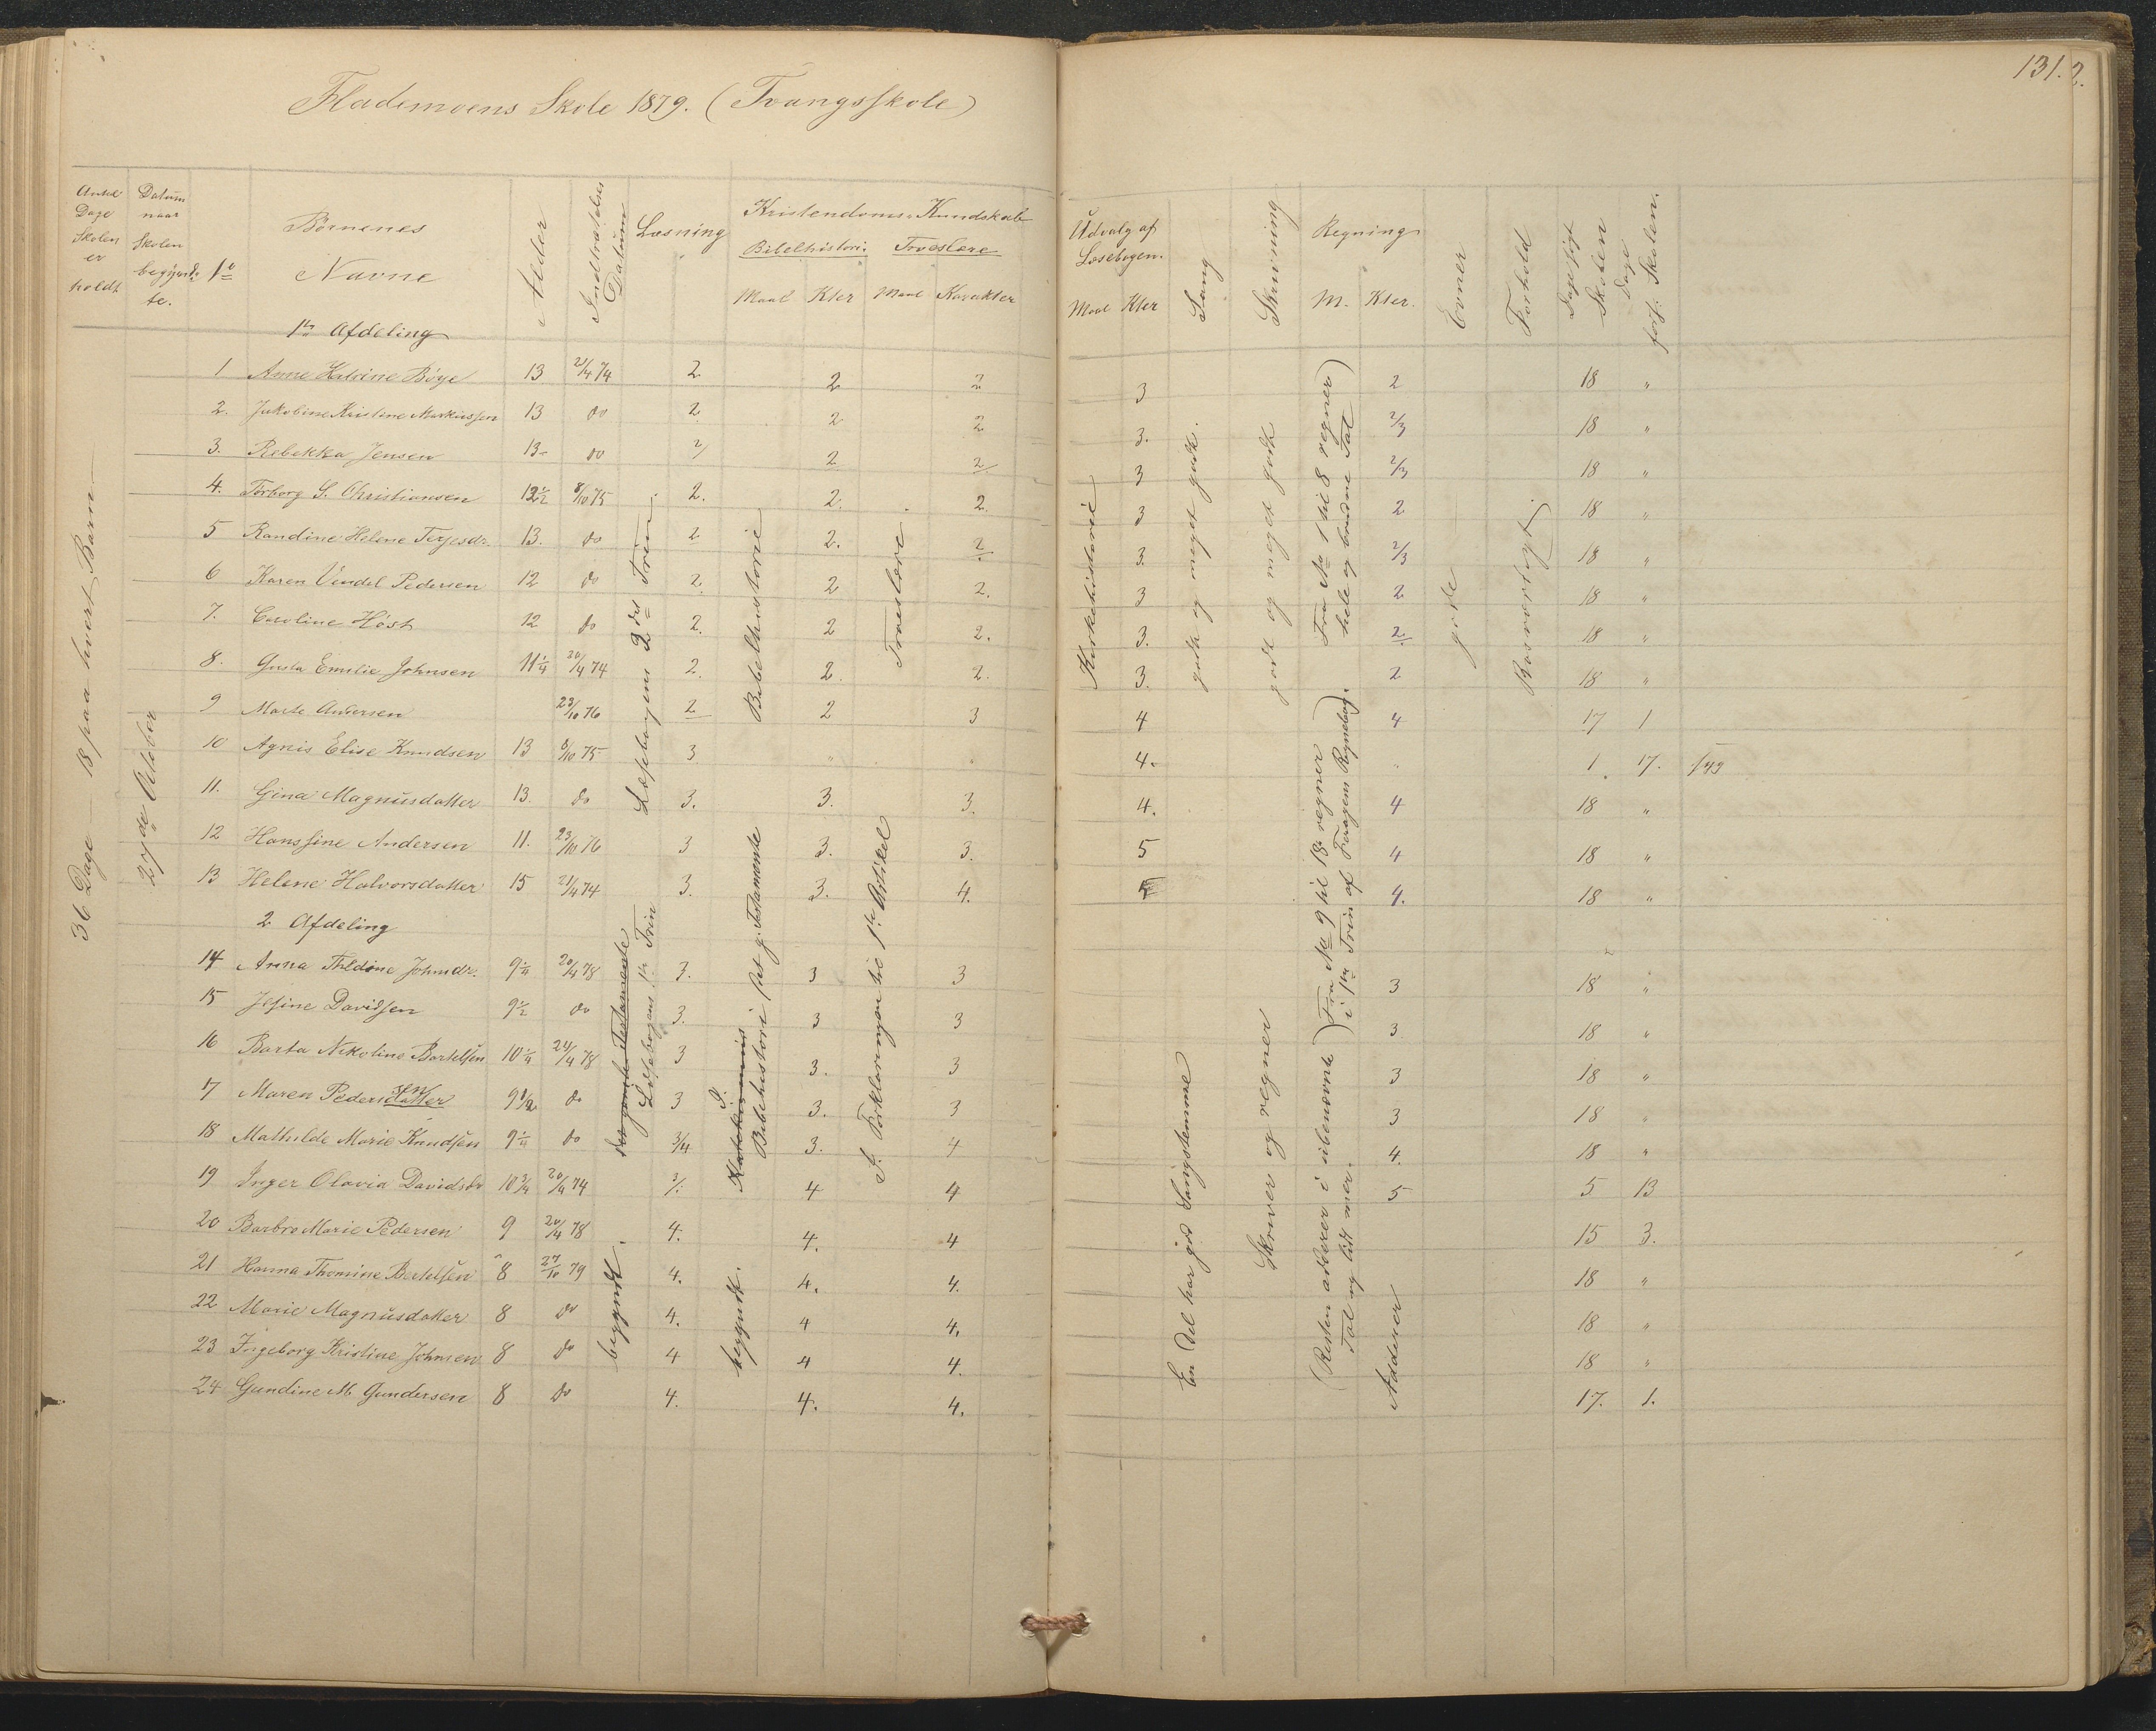 131.2.
Flademoens Skole 1879. (Tvangsskole)
Antal Dage Skolen er holdt
Datum naar Skolen begyndte.
No
Børnenes Navne
Alder
Indtrædelses Datum
Læsning
Kristendoms-Kundskab
Bibelhistorie Troeslære
Maal Kter Maal Karakter
Udvalg af Læsebogen.
Maal Kter
Sang
Skrivning
Regning
M. Kter.
Evner
Forhold
Dage søgt Skolen
Dage fors. Skolen.
36 Dage — 18 paa hvert Barn —
27de Oktober
1ste Afdeling
1 Anne Katrine Bøye 13 21/4 74 2 2 2 3 2 18 "
2. Jakobine Kristine Markussen 13 do 2 2 2 3. 2/3 18 "
3. Rebekka Jensen 13 do 2/ 2 2/ 3 2/3 18 "
4. Torborg S. Christiansen 12 1/2 8/10 75 2. 2. 2. 3 2 18 "
5 Randine Helene Terjesdr. 13. do 2 2. 2 3. 2/3 18 "
6 Karen Vendel Pedersen 12 do 2. 2 2. 3 2 18 "
7. Caroline Høst 12 do 2. 2 2. 3. 2 18 "
8. Gusta Emilie Johnsen 11 1/4 20/4 74 2. 2. 2. 3. 2 18 "
9 Marte Andersen 23/10 76 2 2 3 4 4 17 1
10 Agnis Elise Knudsen 13 8/10 75 3 " " 4. " 1 17.
11. Gina Magnusdatter 13. do 3. 3. 3. 4. 4 18 "
12 Hanssine Andersen 11. 23/10 76 3 3. 3. 5 4 18 "
13 Helene Halvorsdatter 15 21/4 74 3. 3. 4. 5 4. 18 "
2 Afdeling
14 Anna Theldine Johnsdr. 9 1/4 20/4 78 3. 3 3 3 18 "
15 Jesine Davidsen 9 1/2 do 3. 3 3 3 18 "
16 Barta Nikoline Bertelsen 10 1/4 24/4 78 3 3. 3 3 18 "
17 Maren Pedersdatter sen 9 1/2 do 3 3. 3 3 18 "
18 Mathilde Marie Knudsen 9 1/4 do 3/4 3. 4 4. 18 "
19 Inger Olavia Davidsdr 10 3/4 20/4 74 3/. 4 4 5 5 13
20 Barbro Marie Pedersen 9 20/4 78 4. 4. 4 15 3.
21 Hanna Thomine Bertelsen 8 27/10 79 4. 4. 4. 18 "
22 Marie Magnusdatter 8 do 4. 4 4. 18 "
23 Ingeborg Kristine Johnsen 8 do 4 4 4. 18 "
24 Gundine M. Gundersen 8 do 4. 4. 4. 17. 1.
Læsebogens 2det Trin
det gamle Testamente
Læsebogens 1ste Trin
begyndt.
Bibelhistorie
Katekismus
Bibelhistori det g. Testamente
begyndt.
Troeslære
F. Forklaringen til 1ste Artikel
Kirkehistorie
godt og meget godt.
En Del har god Sangstemme
godt og meget godt
Skriver og regner
Fra No 1 til 8 regner)
hele og brudne Tal
Fra No 9 til 18. regner)
i 1ste Trin af Foragens Regnebog.
(Resten adderer i ubenævnte)
Tal og lidt mer.
Adderer
gode
Rosværdigt